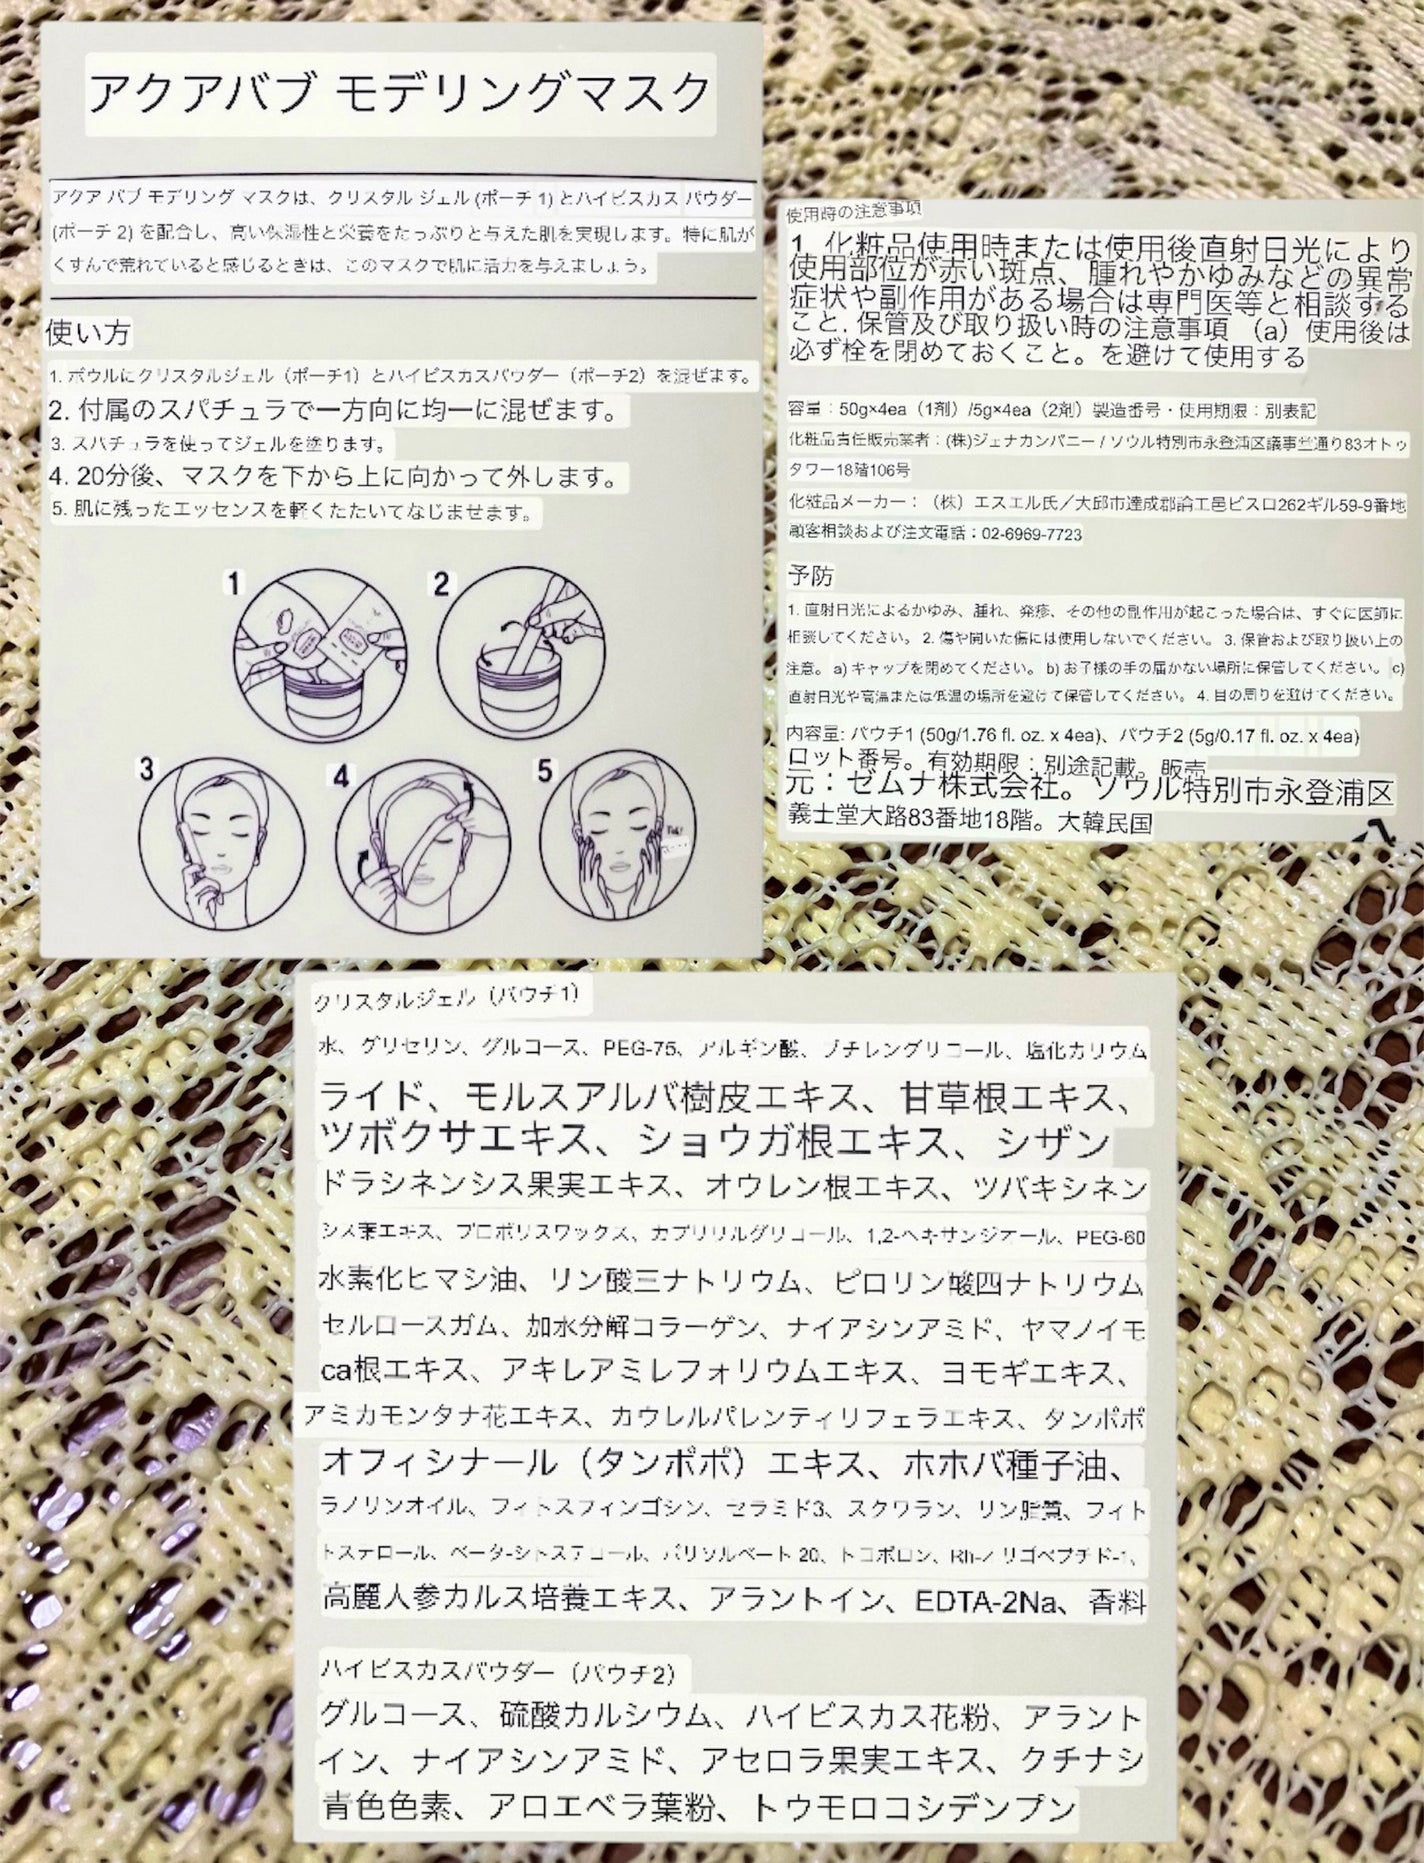 アクアバブ モデリングマスク
アクア バブ モデリング マスクは、クリスタル ジェル (ポーチ 1) とハイビスカス パウダー
(ポーチ 2) を配合し、高い保湿性と栄養をたっぷりと与えた肌を実現します。特に肌が
くすんで荒れていると感じるときは、このマスクで肌に活力を与えましょう。
使い方
1. ボウルにクリスタルジェル（ポーチ1）とハイビスカスパウダー（ポーチ2）を混ぜます。
2. 付属のスパチュラで一方向に均一に混ぜます。
3. スパチュラを使ってジェルを塗ります。
4. 20分後、マスクを下から上に向かって外します。
5. 肌に残ったエッセンスを軽くたたいてなじませます。
1
2
3
4
5
使用時の注意事項
1. 化粧品使用時または使用後直射日光により
使用部位が赤い斑点、腫れやかゆみなどの異常
症状や副作用がある場合は専門医等と相談する
こと. 保管及び取り扱い時の注意事項 （a）使用後は
必ず栓を閉めておくこと。を避けて使用する
容量：50g×4ea（1剤）/5g×4ea（2剤）製造番号・使用期限：別表記
化粧品責任販売業者：(株)ジェナカンパニー / ソウル特別市永登浦区議事堂通り83オトゥ
タワー18階106号
化粧品メーカー：（株）エスエル氏／大邱市達成郡論工邑ビスロ262ギル59-9番地
顧客相談および注文電話：02-6969-7723
予防
1. 直射日光によるかゆみ、腫れ、発疹、その他の副作用が起こった場合は、すぐに医師に
相談してください。 2. 傷や開いた傷には使用しないでください。 3. 保管および取り扱い上の
注意。 a) キャップを閉めてください。 b) お子様の手の届かない場所に保管してください。 c)
直射日光や高温または低温の場所を避けて保管してください。 4. 目の周りを避けてください。
内容量: パウチ1 (50g/1.76 fl. oz. x 4ea)、パウチ2 (5g/0.17 fl. oz. x 4ea)
ロット番号。有効期限：別途記載。販売
元：ゼムナ株式会社。ソウル特別市永登浦区
義士堂大路83番地18階。大韓民国
クリスタルジェル（パウチ1）
水、グリセリン、グルコース、PEG-75、アルギン酸、ブチレングリコール、塩化カリウム
ライド、モルスアルバ樹皮エキス、甘草根エキス、
ツボクサエキス、ショウガ根エキス、シザン
ドラシネンシス果実エキス、オウレン根エキス、ツバキシネン
シス葉エキス、プロポリスワックス、カプリリルグリコール、1,2-ヘキサンジオール、PEG-60
水素化ヒマシ油、リン酸三ナトリウム、ピロリン酸四ナトリウム
セルロースガム、加水分解コラーゲン、ナイアシンアミド、ヤマノイモ
ca根エキス、アキレアミレフォリウムエキス、ヨモギエキス、
アミカモンタナ花エキス、カウレルパレンティリフェラエキス、タンポポ
オフィシナール（タンポポ）エキス、ホホバ種子油、
ラノリンオイル、フィトスフィンゴシン、セラミド3、スクワラン、リン脂質、フィト
トステロール、ベータ-シトステロール、パリソルベート 20、トコポロン、Rh-オリゴペプチド-1、
高麗人参カルス培養エキス、アラントイン、EDTA-2Na、香料
ハイビスカスパウダー（パウチ2）
グルコース、硫酸カルシウム、ハイビスカス花粉、アラント
イン、ナイアシンアミド、アセロラ果実エキス、クチナシ
青色色素、アロエベラ葉粉、トウモロコシデンプン